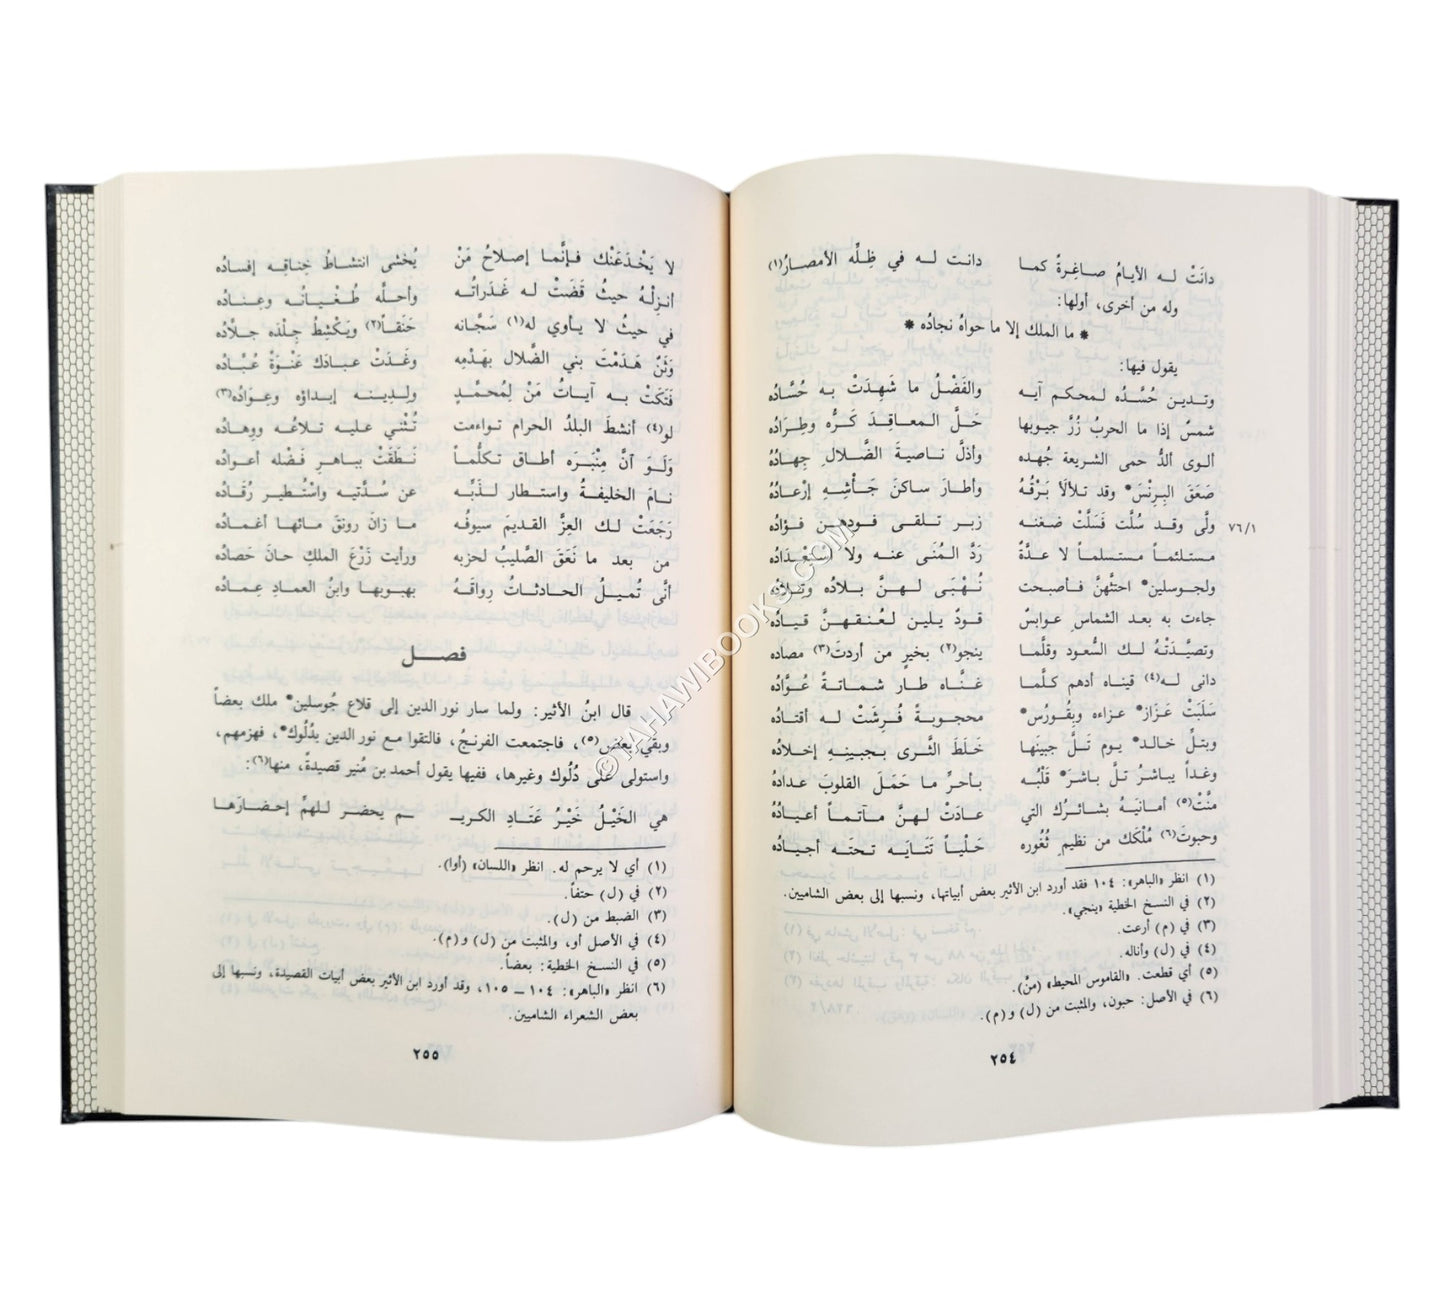 دانَتْ له الأيامُ صاغِرةً كما دانت له في ظِلِّه الأمصارُ(١)
وله من أخرى، أولها:
* ما الملك إلا ما حواهُ نجادُه *
يقول فيها:
وتدين حُسَّدُه لمحكم آيه والفَضْلُ ما شَهِدَتْ به حُسَّادُه
شمسٌ إذا ما الحربُ زُرَّ جيوبها حَلَّ المعاقِدَ كَرُّه وطِرَادُه
ألوى ألدُّ حمى الشريعة جُهده وأذلَّ ناصيةَ الضَّلالِ جِهادُهُ
صَعَقَ البِرِنْسَ* وقد تلألأ بَرْقُهُ وأطارَ ساكنَ جَأْشِهِ إِرْعادُهُ
ولَّى وقد سُلَّت فَسَلَّتْ ضغنه زبر تلقى فودهن فؤادُه
٧٦/١
مستلئماً مستسلماً لا عدَّةً رَدَّ المُنَى عنه ولا اسْتِعْدَادُه
ولجوسلين* احتثَّهنَّ فأصبحت نُهْبَى لهنَّ بلادُه وتِلادُه
جاءت به بعد الشماسِ عوابسٌ قودٌ يلين لعنقهنَّ قياده
وتصيَّدَتْهُ لك السُّعود وقلَّما ينجو(٢) بخيرٍ من أردتَ(٣) مصاده
دانى له(٤) قيناه أدهم كلَّما غنَّاه طار شماتةً عُوَّادُه
سَلَبَتْ عَزَاز* عزاءه وبقُورُس* محجوبةً فُرِشَتْ له أقتادُه
وبتلِّ خالد* يوم تَلَّ جبينَها خَلَطَ الثَّرى بجبينِهِ إخلادُه
وغداً يباشرُ تلَّ باشرَ* قَلْبُه بأحرِّ ما حَمَلَ القلوبَ عداده
منَّتْ(٥) أمانيَهُ بشائرُك التي عادَتْ لهنَّ مآتماً أعيادُهُ
وحبوتَ(٦) مُلْكَك من نظيمِ ثُغُوره حَلْياً تَتَايَه تحتَه أجيادُه
(١) انظر «الباهر»: ١٠٤ فقد أورد ابن الأثير بعض أبياتها، ونسبها إلى بعض الشاميين.
(٢) في النسخ الخطية «ينجي».
(٣) في (م) أرعت.
(٤) في (ل) وأناله.
(٥) أي قطعت. «القاموس المحيط» (منّ).
(٦) في الأصل: حبون، والمثبت من (ل) و(م).
٢٥٤
لا يَخْدَعَنْك فإنَّما إصلاحُ مَنْ يُخشى انتشاطُ خِناقِه إفسادُه
أنزِلْهُ حيثُ قَضَتْ له غَدَراتُه وأحلَّه طُغْيانُه وعِنادُه
في حيثُ لا يأوي له(١) سَجَّانه حَنَقاً(٢) ويَكْشِطُ جِلْدَه جلَّادُه
وَثَنٌ هَدَمْتَ بني الضَّلال بهَدْمِه وغَدَتْ عبادَك عَنْوَةً عُبَّادُه
فَتَكَتْ به آياتُ مَنْ لِمُحمَّدٍ ولِدِينه إبداؤه وعِوَادُه(٣)
لو(٤) أنشطَ البلدُ الحرام تواءمت تُثْني عليه تلاعُه ووِهادُه
وَلَوَ آنَّ مِنْبَرَه أطاق تكلُّماً نَطَقَتْ بباهرِ فَضْله أعوادُه
نامَ الخليفةُ واستطار لذَبِّه عن سُدَّتيه واسْتُطير رُقَادُه
رَجَعَتْ لك العِزَّ القديمَ سيوفُه ما زانَ رونقَ مائها أغمادُه
من بعد ما نَعَقَ الصَّليبُ لحزبه ورأيت زَرْعَ الملكِ حانَ حَصادُه
أنَّى تُميلُ الحادثاتُ رِواقَهُ بهبوبها وابنُ العمادِ عِمادُه
فصل
قال ابنُ الأثير: ولما سار نور الدين إلى قلاع جُوسلين* ملك بعضاً
وبقي بعض(٥)، فاجتمعت الفرنجُ، فالتقوا مع نور الدين بِدُلُوك*، فهزمهم،
واستولى على دُلُوك وغيرها، ففيها يقول أحمد بن مُنير قصيدة، منها(٦):
هي الخَيْلُ خَيْرُ عَتَادِ الكريـ ـم يحضر للهمِّ إحضارَها
(١) أي لا يرحم له. انظر «اللسان» (أوا).
(٢) في (ل) حتفاً.
(٣) الضبط من (ل).
(٤) في الأصل أو، والمثبت من (ل) و(م).
(٥) في النسخ الخطية: بعضاً.
(٦) انظر «الباهر»: ١٠٤ — ١٠٥، وقد أورد ابن الأثير بعض أبيات القصيدة، ونسبها إلى
بعض الشعراء الشاميين.
٢٥٥
©TAHAWIBOOKS.COM